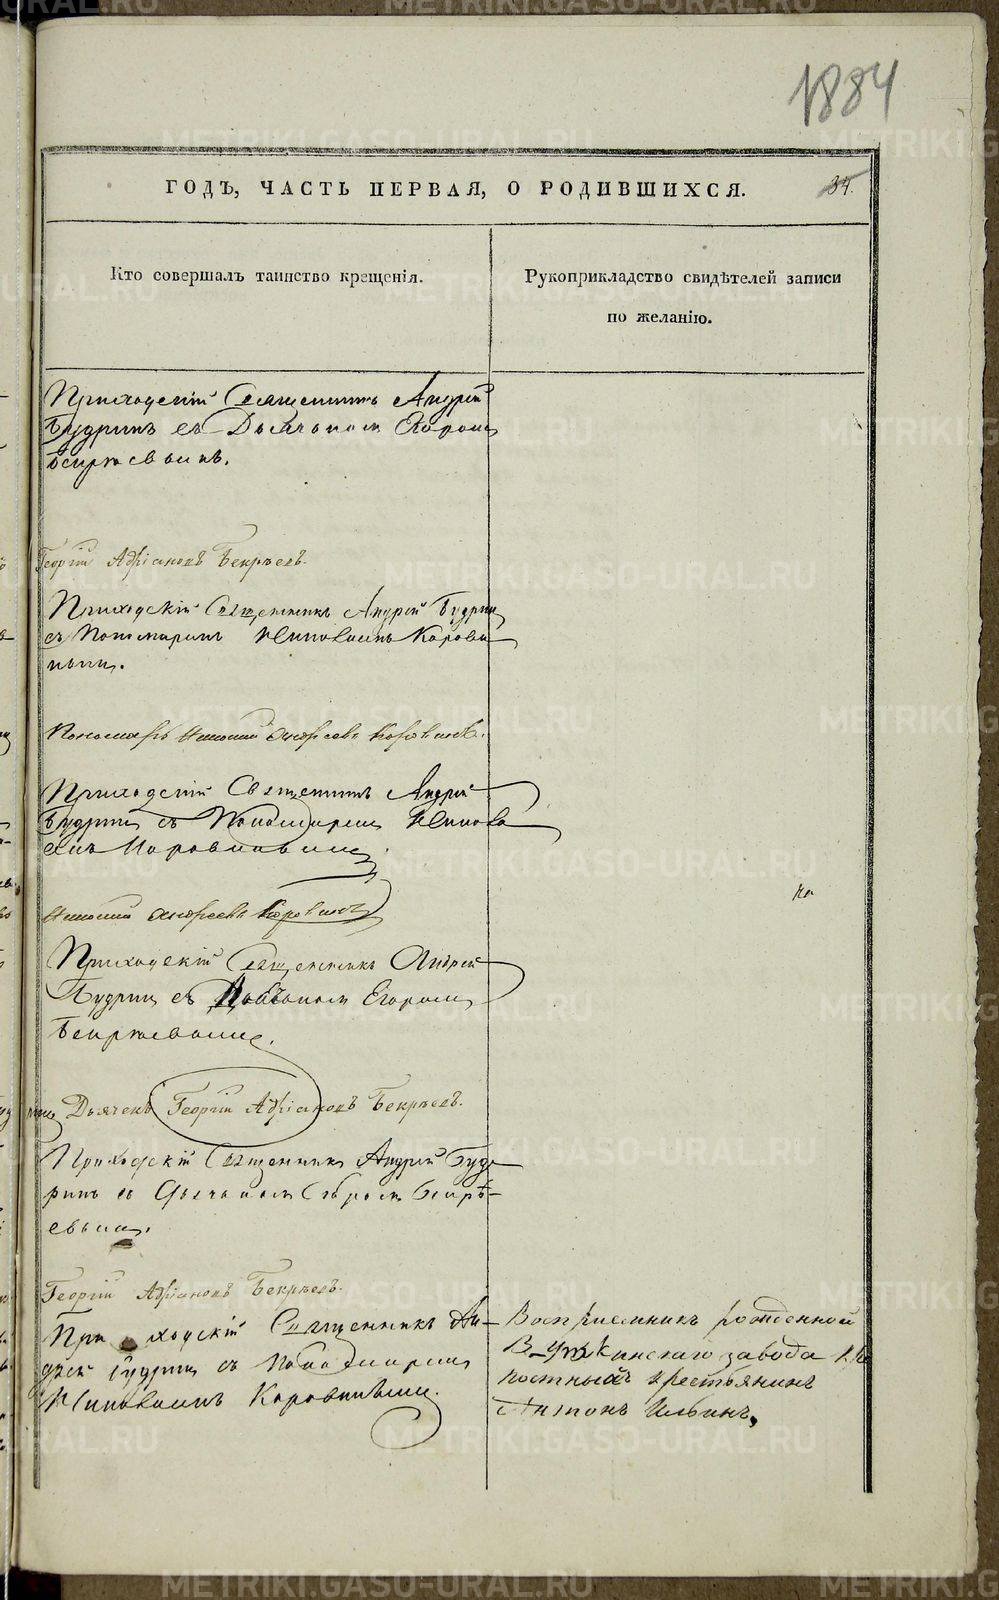 1884
ГОДЪ, ЧАСТЬ ПЕРВАЯ, О РОДИВШИХСЯ.
34.
Кто совершалъ таинство крещенія.
Рукоприкладство свидѣтелей записи
по желанію.
Приходскій Священникъ Андрей
Будринъ съ Дьячкомъ Егоромъ
Бекряевымъ.
Георгій Адріановъ Бекряевъ.
Приходскій Священникъ Андрей Будринъ
съ Пономаремъ Коровинымъ.
Пономарь Андреевъ Коровинъ.
Приходскій Священникъ Андрей
Будринъ съ Пономаремъ
Коровинымъ
Андреевъ Коровинъ
Приходскій Священникъ Андрей
Будринъ съ Егоромъ
Бекряевымъ.
Дьячекъ Георгій Адріановъ Бекряевъ.
Приходскій Священникъ Андрей Буд-
ринъ съ Дьячкомъ Егоромъ Бекрѣ-
евымъ.
Георгій Адріановъ Бекряевъ.
Приходскій Священникъ Ан-
дрей Будринъ съ Пономаремъ
Коровинымъ.
Воспріемникъ рожденной
завода
крестьянинъ
Антонъ Ильинъ,
METRIKI.GASO-URAL.RU